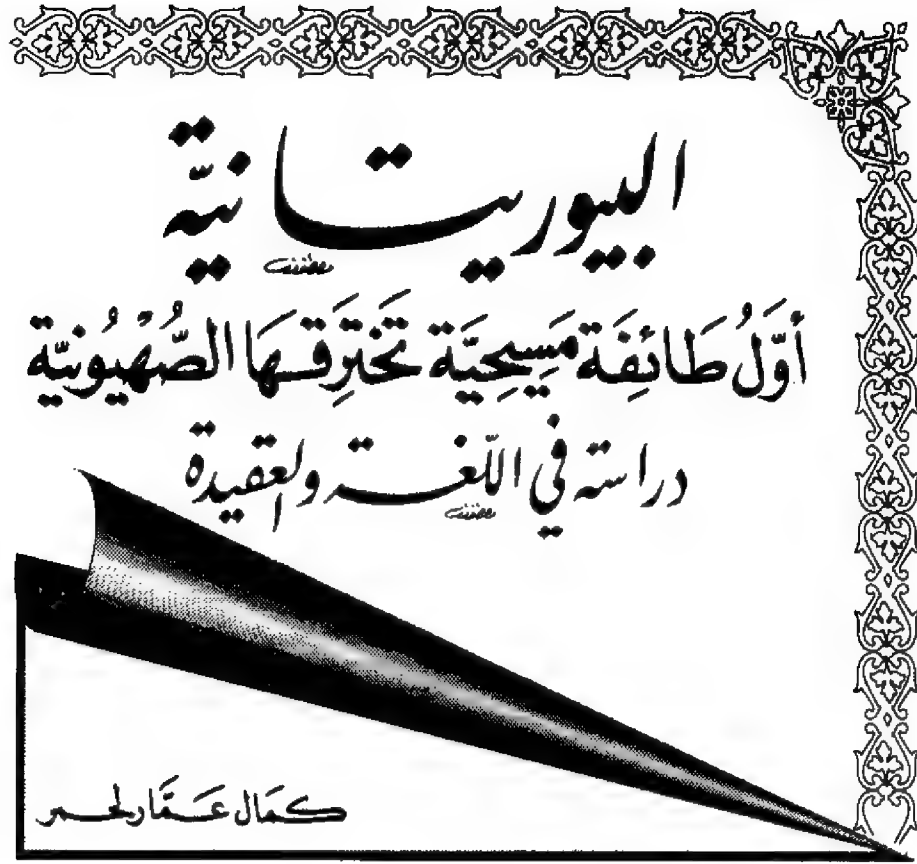 البيوريتانيّة
أوَّلُ طَائِفَة مَسِيحِيَّة تَختَرِقُهَا الصُّهْيُونيّة
دراسة في اللّغة والعقيدة
كمَال عَمَّار